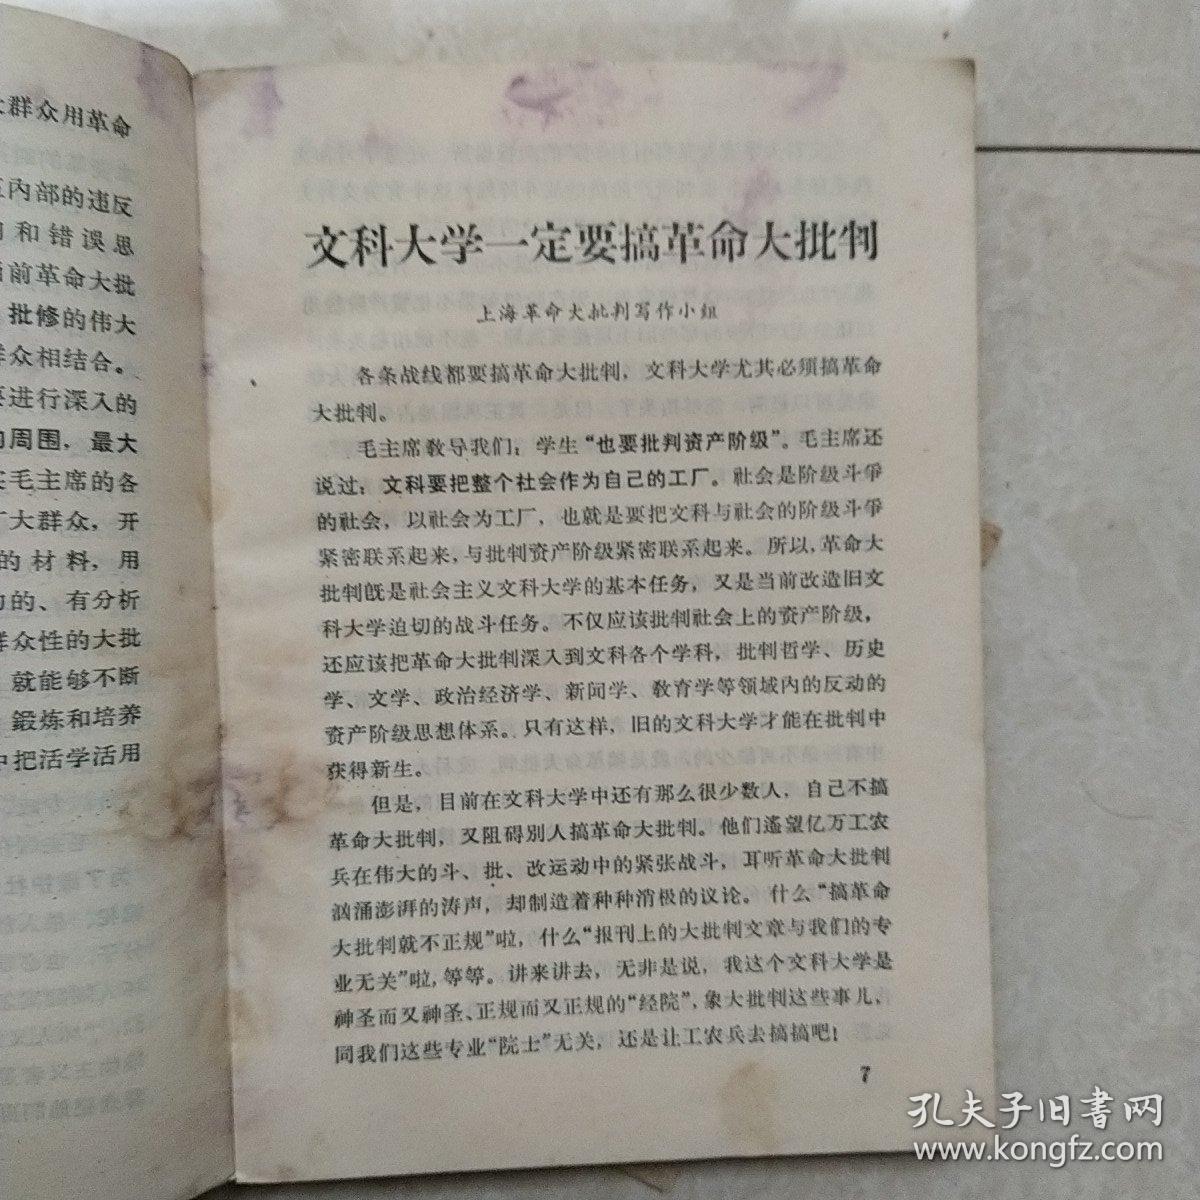 大群众用革命
内部的违反
和错误思
当前革命大批
批修的伟大
群众相结合。
要进行深入的
的周围，最大
毛主席的各
广大群众，开
的材料，用
的、有分析
群众性的大批
就能够不断
鍛炼和培养
中把活学活用
文科大学一定要搞革命大批判
上海革命大批判写作小组
各条战线都要搞革命大批判，文科大学尤其必须搞革命
大批判。
毛主席教导我们：学生“也要批判资产阶级”。毛主席还
说过：文科要把整个社会作为自己的工厂。社会是阶级斗爭
的社会，以社会为工厂，也就是要把文科与社会的阶级斗爭
紧密联系起来，与批判资产阶级紧密联系起来。所以，革命大
批判既是社会主义文科大学的基本任务，又是当前改造旧文
科大学迫切的战斗任务。不仅应该批判社会上的资产阶级，
还应该把革命大批判深入到文科各个学科，批判哲学、历史
学、文学、政治经济学、新闻学、教育学等领域内的反动的
资产阶级思想体系。只有这样，旧的文科大学才能在批判中
获得新生。
但是，目前在文科大学中还有那么很少数人，自己不搞
革命大批判，又阻碍别人搞革命大批判。他们遥望亿万工农
兵在伟大的斗、批、改运动中的紧张战斗，耳听革命大批判
汹涌澎湃的涛声，却制造着种种消极的议论。什么“搞革命
大批判就不正规”啦，什么“报刊上的大批判文章与我们的专
业无关”啦，等等。讲来讲去，无非是说，我这个文科大学是
神圣而又神圣、正规而又正规的“经院”，象大批判这些事儿，
同我们这些专业“院士”无关，还是让工农兵去搞搞吧！
7
孔夫子旧书网
www.kongfz.com